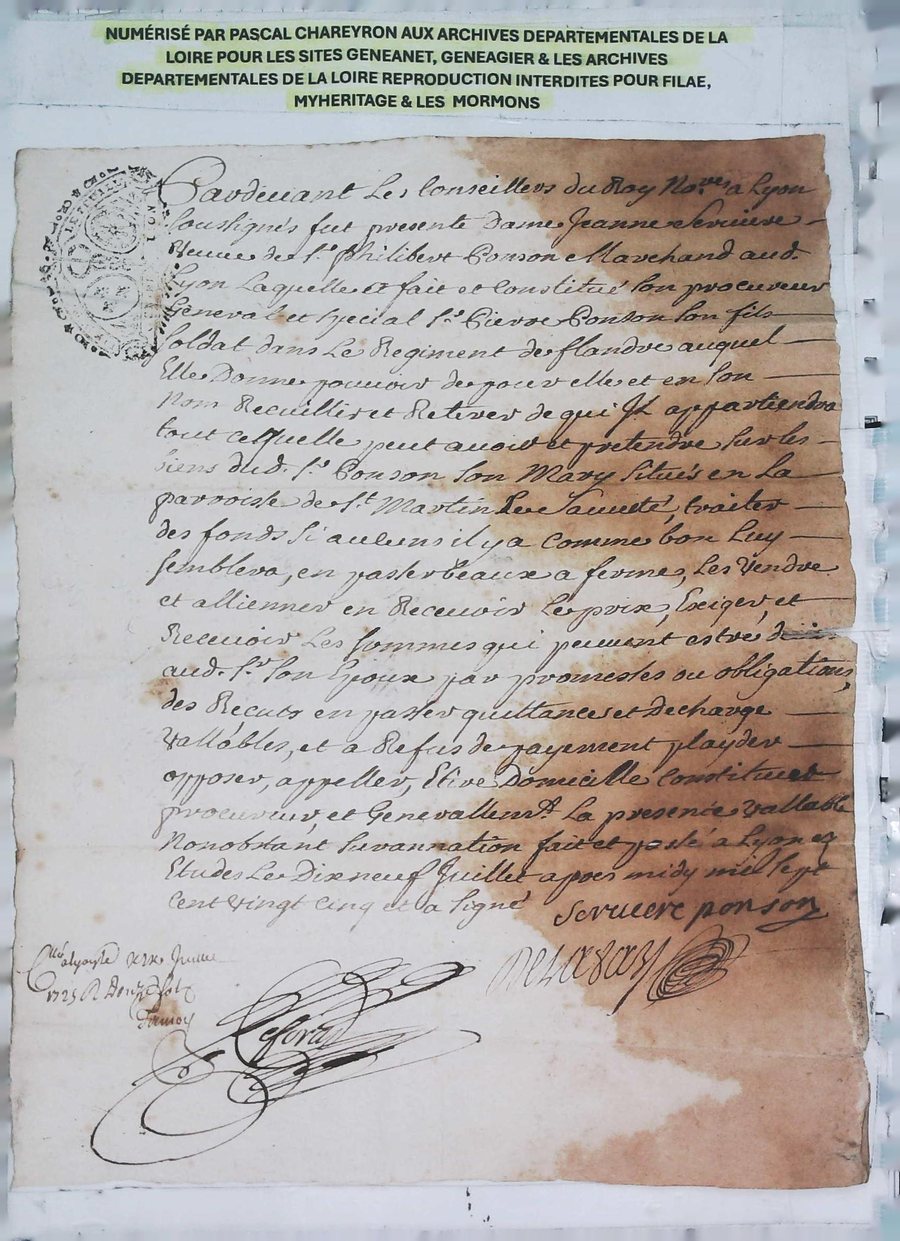 NUMÉRISÉ PAR PASCAL CHAREYRON AUX ARCHIVES DEPARTEMENTALES DE LA
LOIRE POUR LES SITES GENEANET, GENEAGIER & LES ARCHIVES
DEPARTEMENTALES DE LA LOIRE REPRODUCTION INTERDITES POUR FILAE,
MYHERITAGE & LES MORMONS
Pardevant Les Conseillers du Roy No.res a Lyon
soussignés fut presente Dame Jeanne Serviere
Veuve de S.r Philibert Ponson Marchand aud.
Lyon Laquelle a fait et Constitué son procureur
General et special S.r Pierre Ponson son fils
Soldat dans Le Regiment de flandre auquel
Elle Donne pouvoir de pour elle et en son
Nom Recuillir et Retirer de qui Il appartiendra
tout ce quelle peut avoir et pretendre sur les
biens dud. S.r Ponson son Mary situés en La
parroisse de S.t Martin La Sauveté, traiter
des fonds si aulcuns il y a comme bon Luy
semblera, en passer beaux a fermes, Les Vendre
et allienner en Recevoir Le prix, Exiger, et
Recevoir Les sommes qui peuvent estre
aud. S.r son Epoux par promesses ou obligations,
des Recuts en passer quittances et decharge
Vallables, et a Refus de payement playder
opposer, appeller, Elire Domicille Constituer
procureur, et Generallem.t La presente Vallable
Nonobstant survannation fait et passé a Lyon ez
Etudes Le Dix neuf Juillet apres midy mil sept
Cent vingt cinq et a signé serviere ponson
Delaroy
a Lyon le XIX Juillet
1725 R